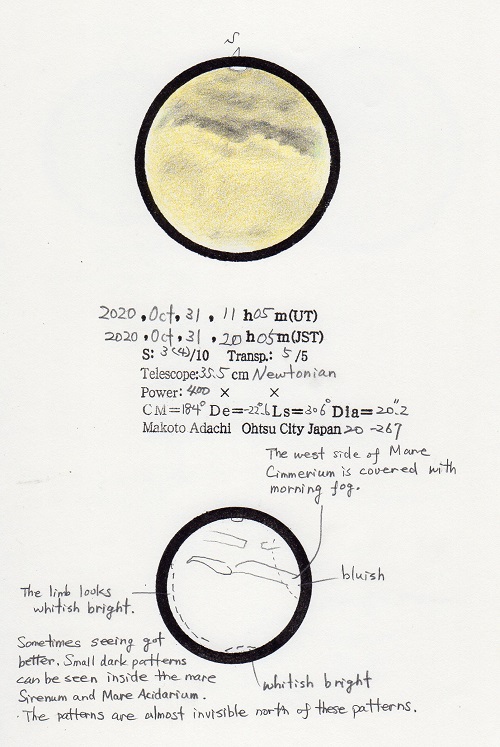 S
2020 , Oct , 31 , 11 h 05 m (UT)
2020 , Oct , 31 , 20 h 05 m (JST)
S: 3 (4) /10 Transp.: 5 /5
Telescope: 35.5 cm Newtonian
Power: 400 × ×
CM=184° De=-22.°6 Ls=306° Dia=20".2
Makoto Adachi Ohtsu City Japan 20 -267
The west side of Mare
Cimmerium is covered with
morning fog.
bluish
The limb looks
whitish bright.
Sometimes seeing got
better. Small dark patterns
can be seen inside the mare
Sirenum and Mare Acidarium.
whitish bright
· The patterns are almost invisible north of these patterns.